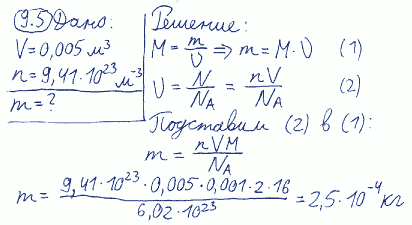 9.5 Дано:
V = 0,005 м³
n = 9,41·10²³ м⁻³
m = ?
Решение:
M = m/υ ⇒ m = M·υ (1)
υ = N/N_A = nV/N_A (2)
Подставим (2) в (1):
m = nVM/N_A
m = 9,41·10²³·0,005·0,001·2·16/6,02·10²³ = 2,5·10⁻⁴ кг